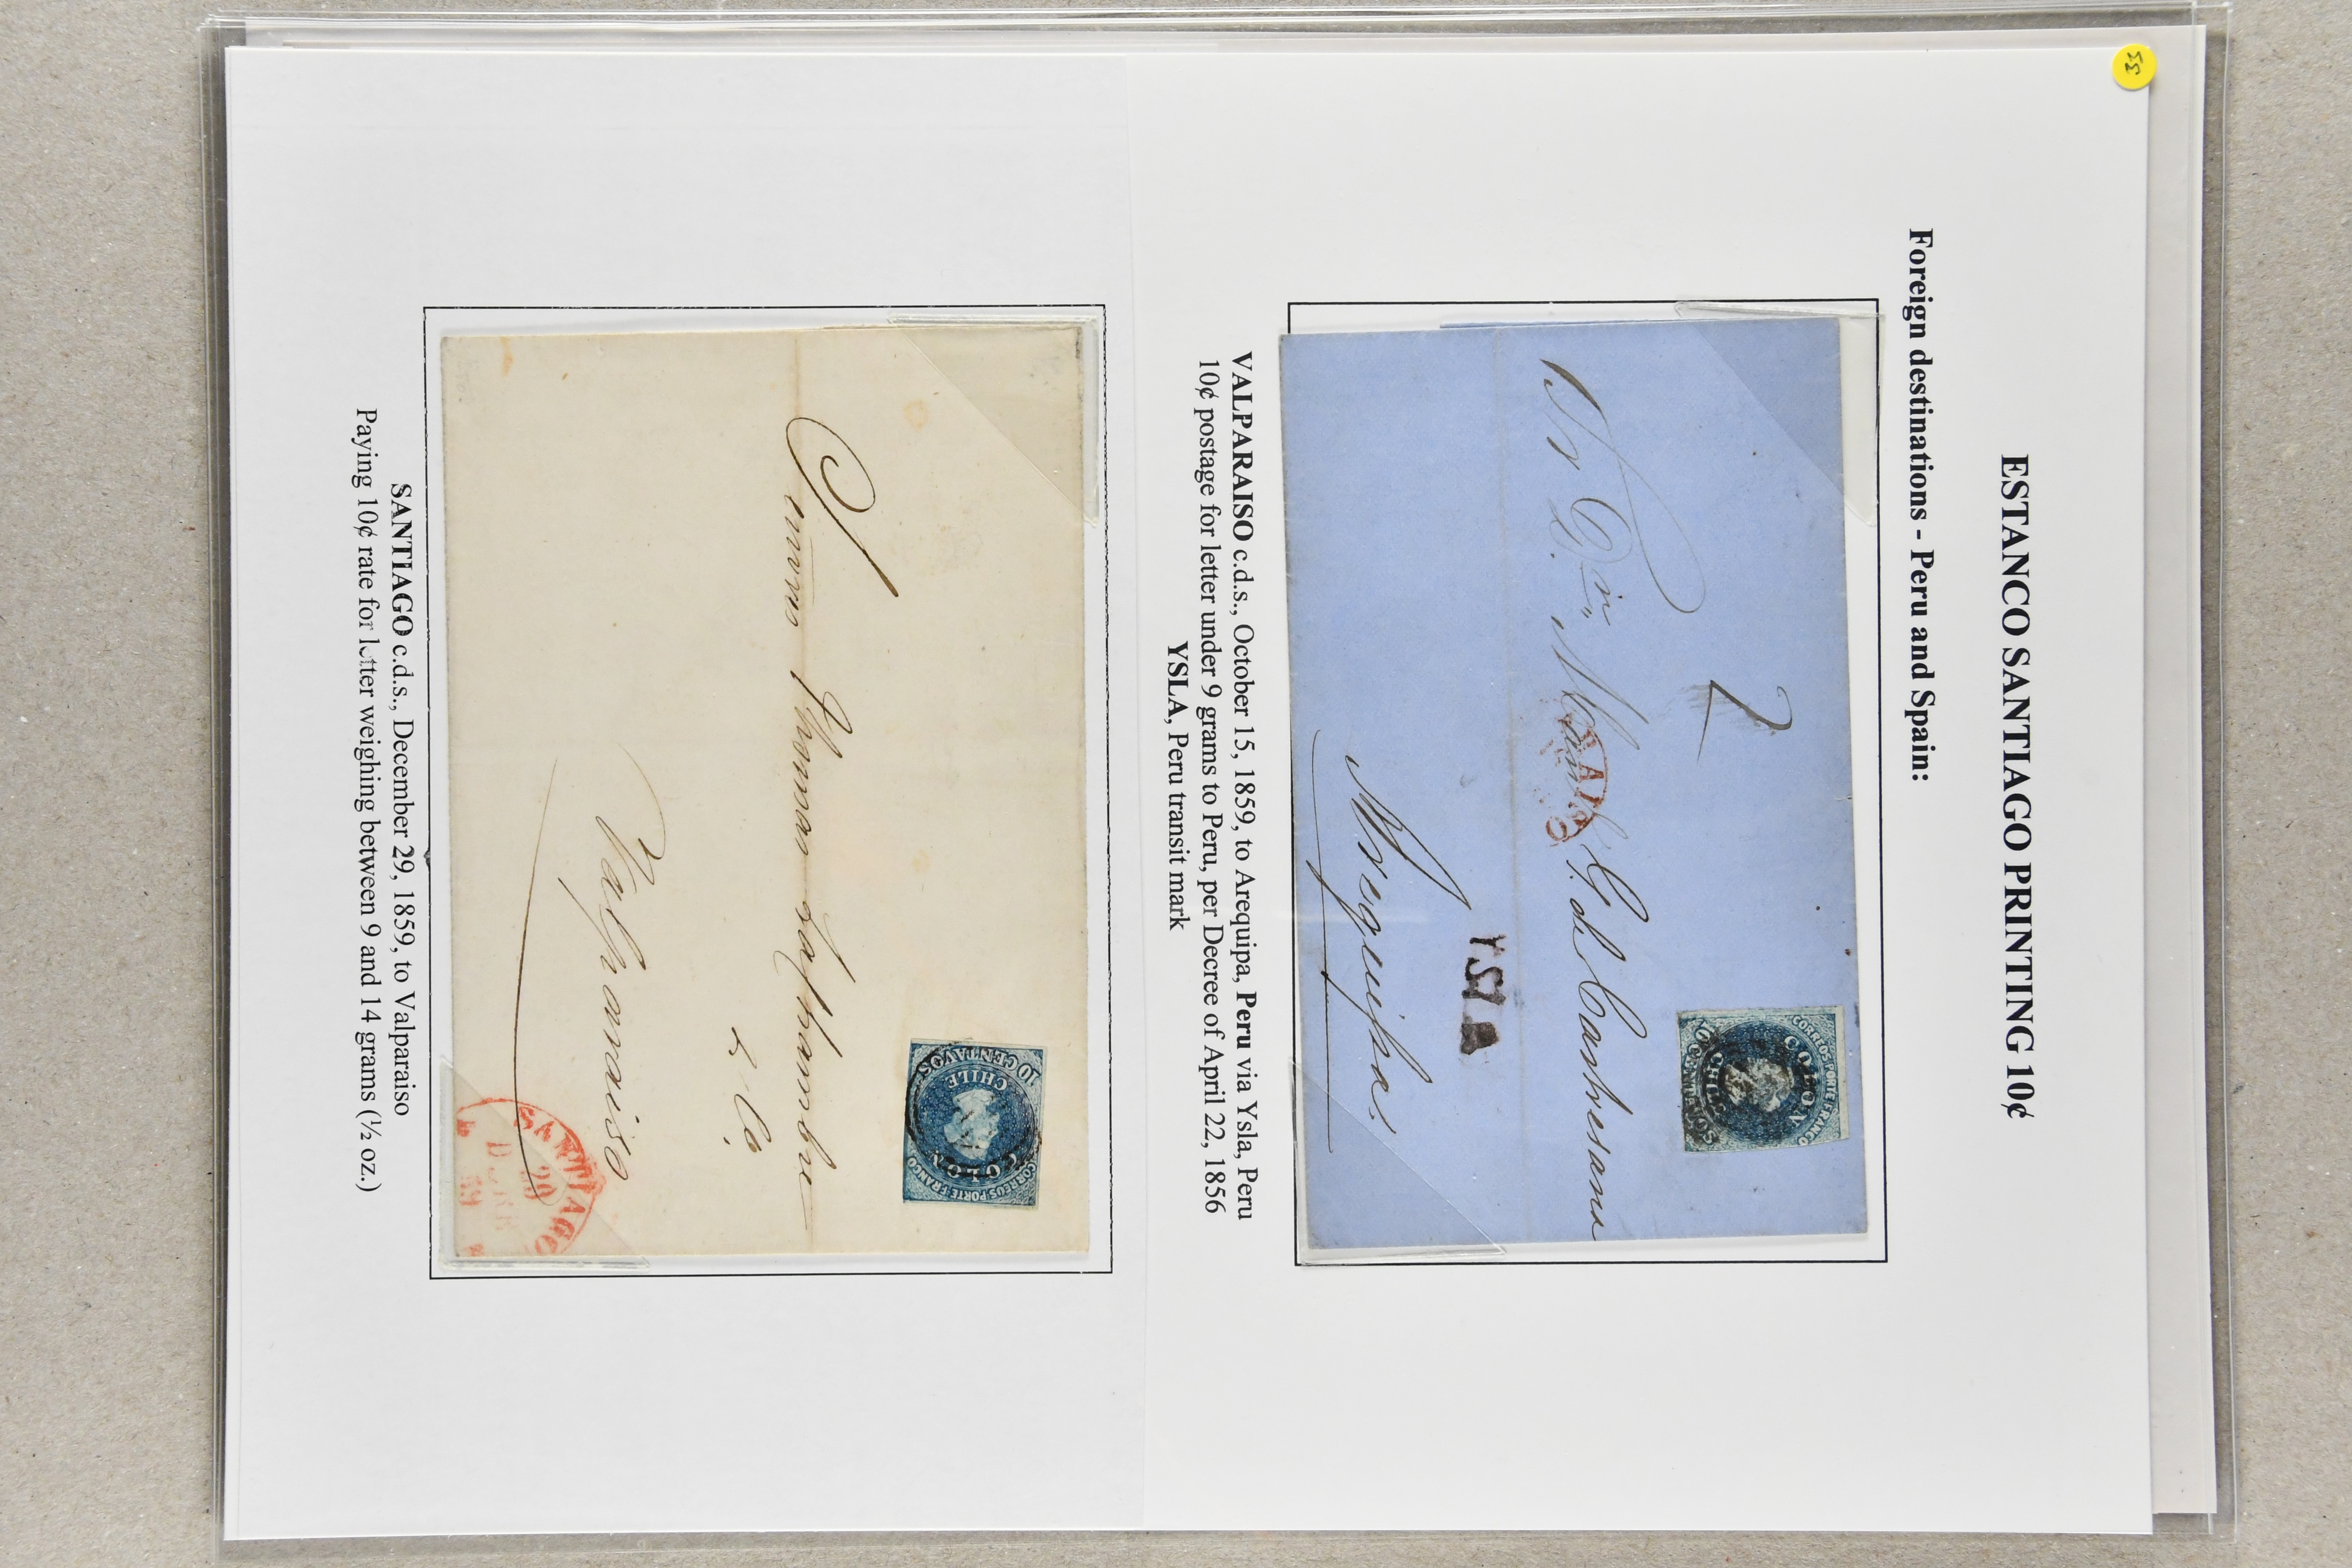 55
ESTANCO SANTIAGO PRINTING 10¢
Foreign destinations - Peru and Spain:
2
CORREOS PORTE FRANCO
COLON
CHILE
10 CENTAVOS
Sr Dn. Mar
G. del Carpesano
YSLA
Arequipa
VALPARAISO c.d.s., October 15, 1859, to Arequipa, Peru via Ysla, Peru
10¢ postage for letter under 9 grams to Peru, per Decree of April 22, 1856
YSLA, Peru transit mark
CORREOS PORTE FRANCO
COLON
CHILE
10 CENTAVOS
Thomas Lachambre
& Co
Valparaiso
SANTIAGO
SANTIAGO c.d.s., December 29, 1859, to Valparaiso
Paying 10¢ rate for letter weighing between 9 and 14 grams (½ oz.)